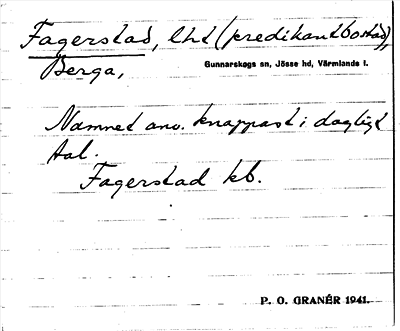 Fagerstad, lht (predikantbostad),
Berga, Gunnarskogs sn, Jösse hd, Värmlands l.
Namnet anv. knappast i dagligt
tal.
Fagerstad kb.
P. O. GRANÉR 1941.